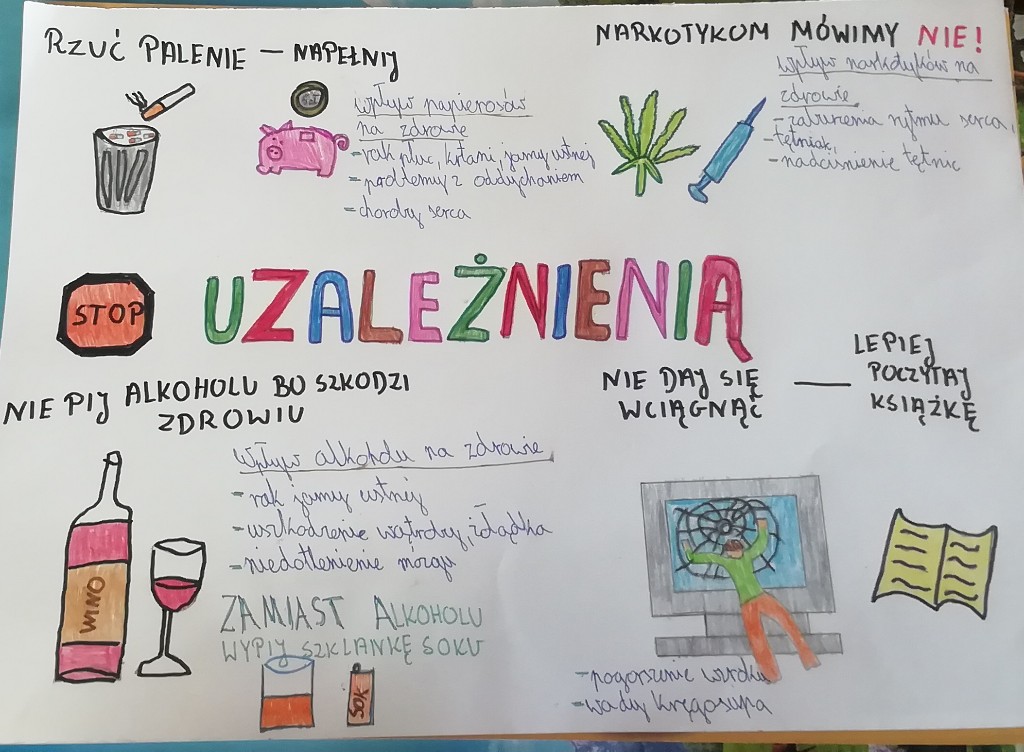 RZUĆ PALENIE – NAPEŁNIJ
wpływ papierosów
na zdrowie
- rak płuc, krtani, jamy ustnej
- problemy z oddychaniem
- choroby serca
NARKOTYKOM MÓWIMY NIE!
wpływ narkotyków na
zdrowie
- zaburzenia rytmu serca,
- tętniak,
- nadciśnienie tętnic
STOP
UZALEŻNIENIĄ
NIE PIJ ALKOHOLU BO SZKODZI
ZDROWIU
Wpływ alkoholu na zdrowie
- rak jamy ustnej
- uszkodzenie wątroby, żołądka
- niedotlenienie mózgu
WINO
ZAMIAST ALKOHOLU
WYPIJ SZKLANKĘ SOKU
SOK
NIE DAJ SIĘ
WCIĄGNĄĆ
— LEPIEJ
POCZYTAJ
KSIĄŻKĘ
- pogorszenie wzroku
- wady kręgosłupa